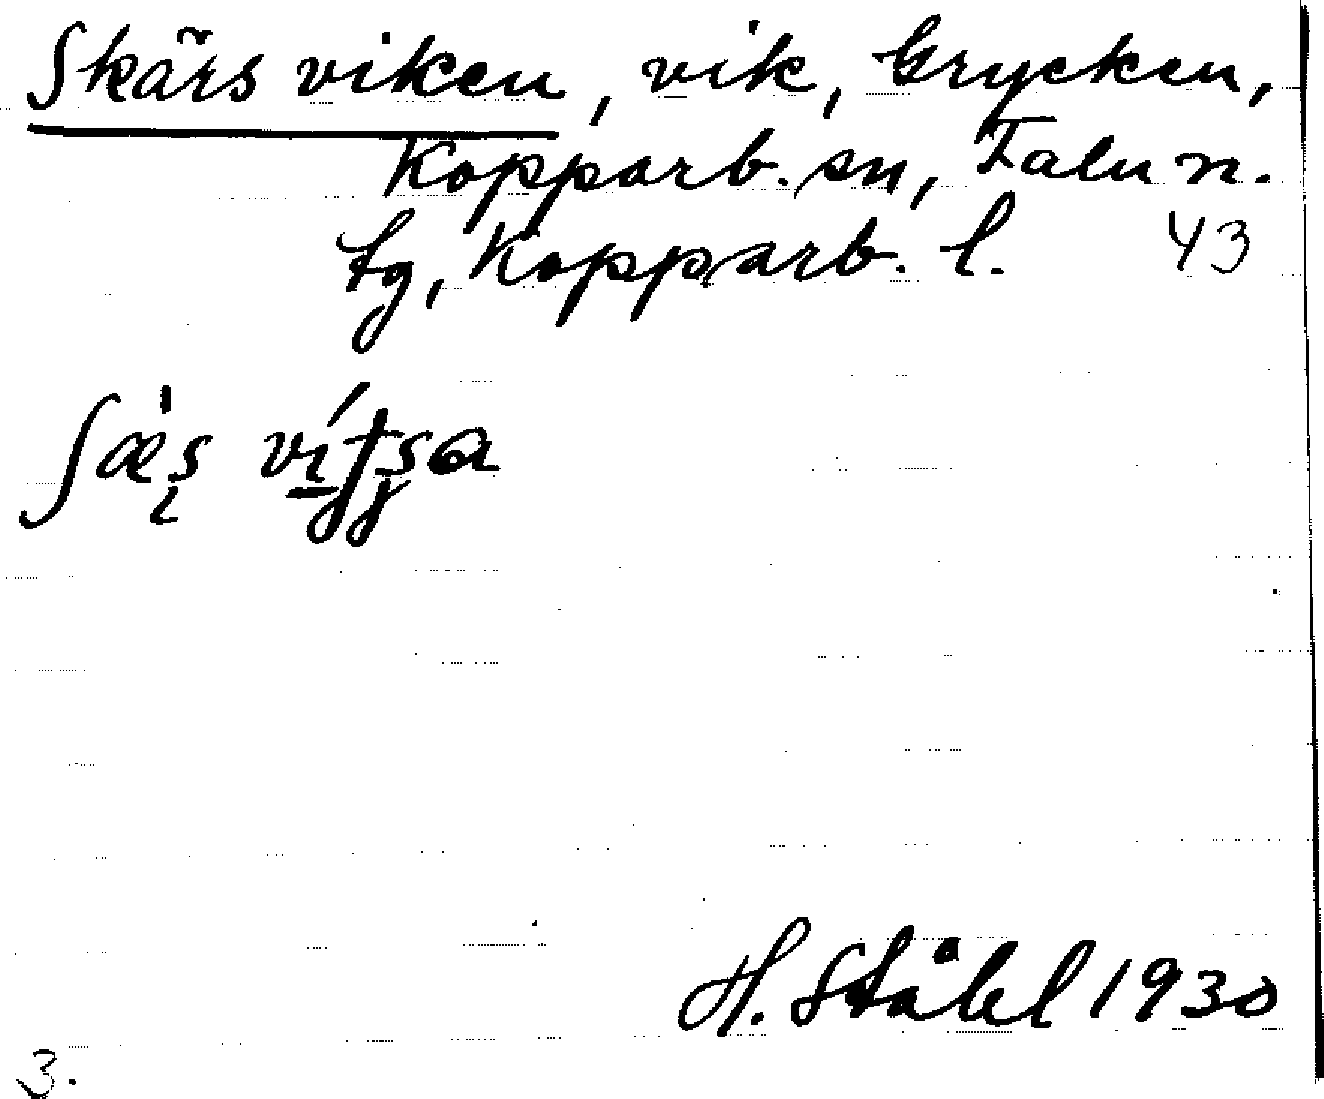 Skärs viken, vik, Grycken,
Kopparb. sn, Falu n.
tg, Kopparb. l. 43
H. Ståhl 1930
3.